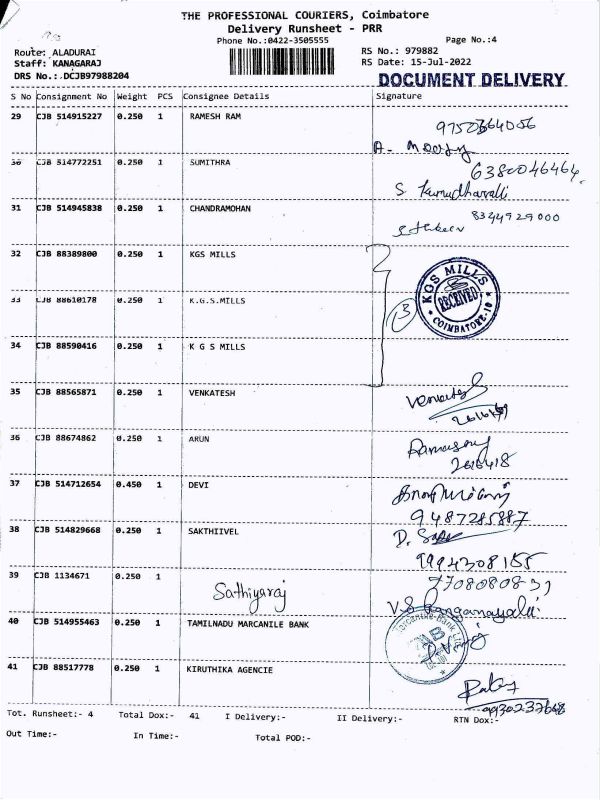 THE PROFESSIONAL COURIERS, Coimbatore
Delivery Runsheet - PRR
Phone No.:0422-3505555 Page No.:4
Route: ALADURAI RS No.: 979882
Staff: KANAGARAJ RS Date: 15-Jul-2022
DRS No.:.DCJB97988204
DOCUMENT DELIVERY
S No Consignment No Weight PCS Consignee Details Signature
29 CJB 514915227 0.250 1 RAMESH RAM
A. Moorjy
30 CJB 514772251 0.250 1 SUMITHRA 6380046464
S
31 CJB 514945838 0.250 1 CHANDRAMOHAN 8344929000
32 CJB 88389800 0.250 1 KGS MILLS
KGS MILLS
33 CJB 88610178 0.250 1 K.G.S.MILLS 3 RECEIVED
COIMBATORE-10
34 CJB 88590416 0.250 1 K G S MILLS
35 CJB 88565871 0.250 1 VENKATESH
36 CJB 88674862 0.250 1 ARUN
2616418
37 CJB 514712654 0.450 1 DEVI
9487285887
38 CJB 514829668 0.250 1 SAKTHIIVEL D.
9994308155
39 CJB 1134671 0.250 1
Sathiyaraj V.S Ranganayaki
40 CJB 514955463 0.250 1 TAMILNADU MARCANILE BANK
41 CJB 88517778 0.250 1 KIRUTHIKA AGENCIE
Tot. Runsheet:- 4 Total Dox:- 41 I Delivery:- II Delivery:- RTN Dox:-
Out Time:- In Time:- Total POD:-